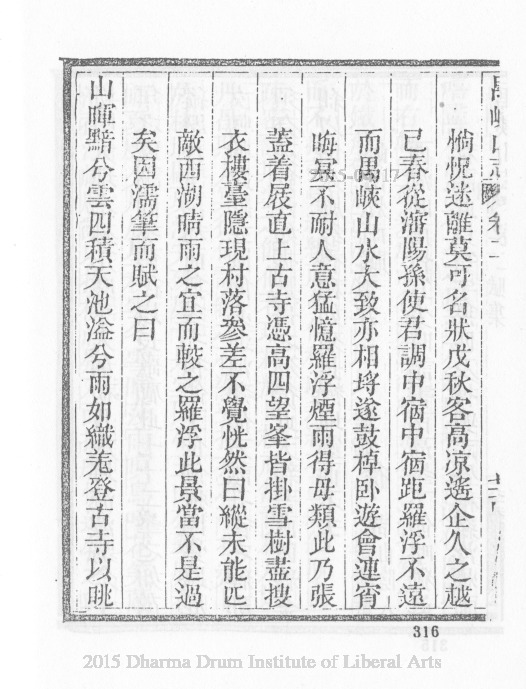 惝怳迷離莫可名狀戊秋客高凉遙企久之越
已春從瀋陽孫使君調中宿中宿距羅浮不遠
而禺峽山水大致亦相埒遂鼓棹臥遊會連宵
晦冥不耐人意猛憶羅浮煙雨得毋類此乃張
蓋着屐直上古寺憑高四望峯皆掛雪樹盡搜
衣樓臺隱現村落參差不覺恍然曰縱未能匹
敵西湖晴雨之宜而較之羅浮此景當不是過
矣因濡筆而賦之曰
山暉黯兮雲四積天池溢兮雨如織羗登古寺以眺
316
2015 Dharma Drum Institute of Liberal Arts